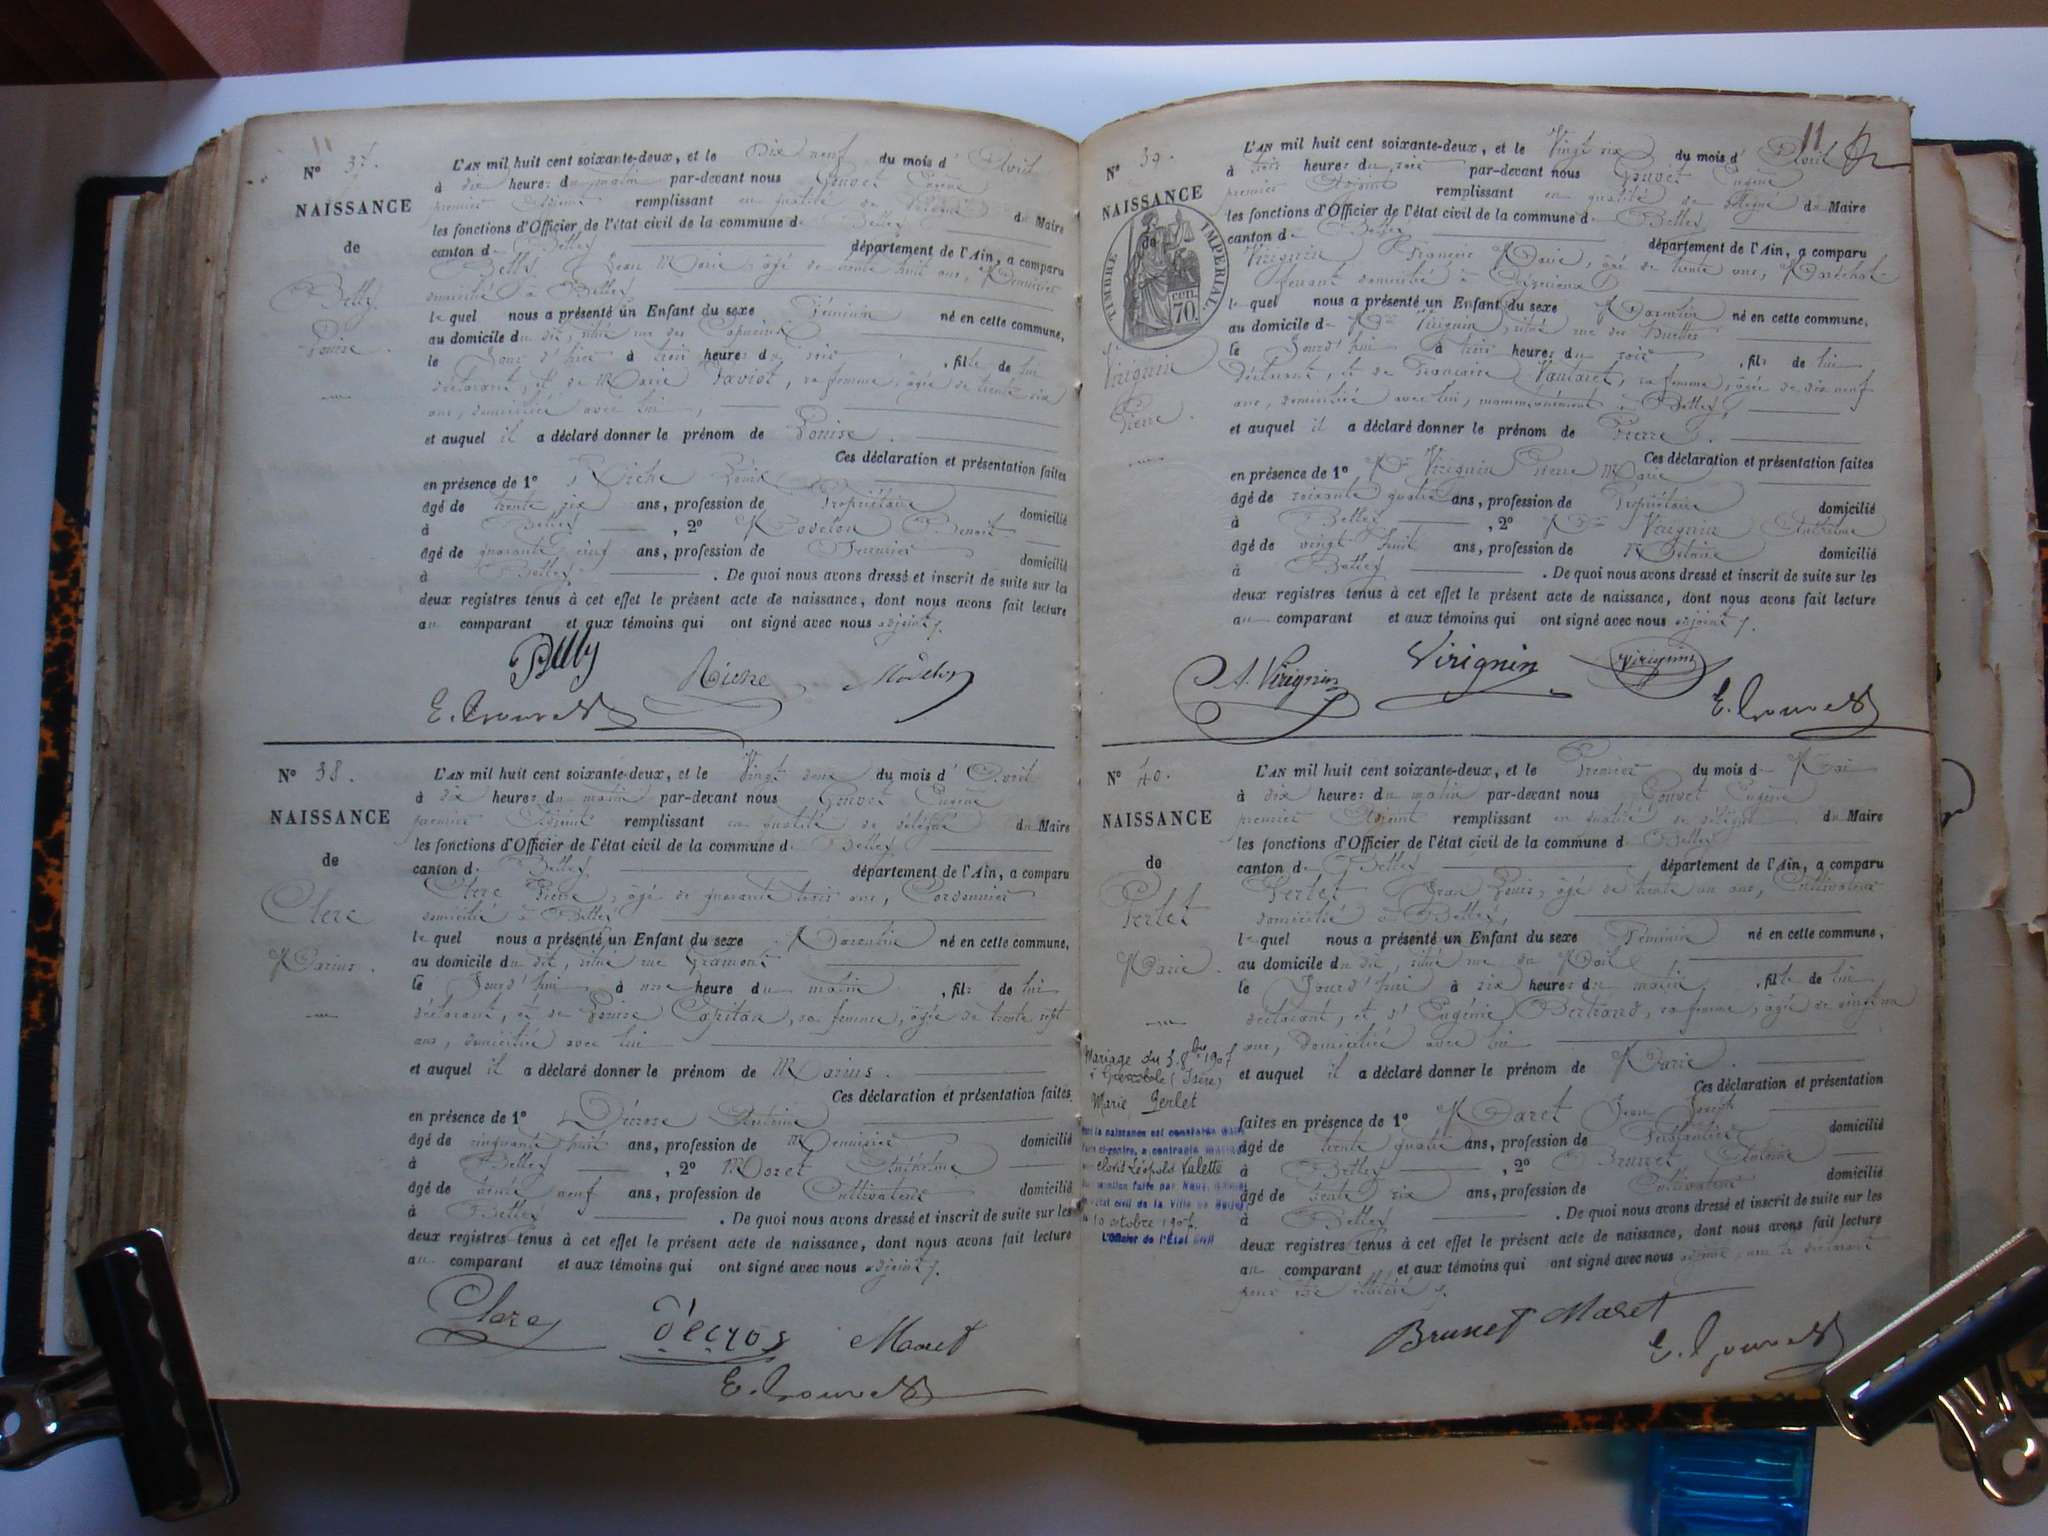 11
N° 37.
NAISSANCE
de
Belly
Louise
L'AN mil huit cent soixante-deux, et le Dix neuf du mois d'Avril
à dix heures du matin par-devant nous Gouvet Eugène
premier Adjoint remplissant en qualité de délégué du Maire
les fonctions d'Officier de l'état civil de la commune de Belley
canton de Belley département de l'Ain, a comparu
Belly Jean Marie, âgé de trente huit ans, Menuisier
domicilié à Belley
lequel nous a présenté un Enfant du sexe Féminin né en cette commune,
au domicile du dit, situé rue des Capucins
le Jour d'hier à trois heures du soir, fille de lui
déclarant, et de Marie Taviot, sa femme, âgée de trente six
ans, domiciliée avec lui,
et auquel il a déclaré donner le prénom de Louise.
Ces déclaration et présentation faites
en présence de 1° Riche Louis
âgé de trente six ans, profession de Propriétaire domicilié
à Belley, 2° Modelon Benoit
âgé de quarante neuf ans, profession de domicilié
à Belley. De quoi nous avons dressé et inscrit de suite sur les
deux registres tenus à cet effet le présent acte de naissance, dont nous avons fait lecture
au comparant et aux témoins qui ont signé avec nous adjoint /.
Belly Riche Modelon
E. Gouvet
N° 38.
NAISSANCE
de
Clerc
Marius.
L'AN mil huit cent soixante-deux, et le Vingt deux du mois d'Avril
à dix heures du matin par-devant nous Gouvet Eugène
premier Adjoint remplissant en qualité de délégué du Maire
les fonctions d'Officier de l'état civil de la commune de Belley
canton de Belley département de l'Ain, a comparu
Clerc Pierre, âgé de quarante trois ans, Cordonnier
domicilié à Belley
lequel nous a présenté un Enfant du sexe Masculin né en cette commune,
au domicile du dit, situé rue Gramont
le Jourd'hui à une heure du matin, fils de lui
déclarant, et de Louise Capitan, sa femme, âgée de trente sept
ans, domiciliée avec lui
et auquel il a déclaré donner le prénom de Marius.
Ces déclaration et présentation faites
en présence de 1° Décrose Antoine
âgé de cinquante huit ans, profession de Menuisier domicilié
à Belley, 2° Moret Anthelme
âgé de trente neuf ans, profession de Cultivateur domicilié
à Belley. De quoi nous avons dressé et inscrit de suite sur les
deux registres tenus à cet effet le présent acte de naissance, dont nous avons fait lecture
au comparant et aux témoins qui ont signé avec nous adjoint /.
Clerc Décros Maret
E. Gouvet
11
N° 39.
NAISSANCE
de
TIMBRE IMPERIAL
CEN. 70.
Virignin
Pierre.
L'AN mil huit cent soixante-deux, et le Vingt six du mois d'Avril
à trois heures du soir par-devant nous Gouvet Eugène
premier Adjoint remplissant en qualité de délégué du Maire
les fonctions d'Officier de l'état civil de la commune de Belley
canton de Belley département de l'Ain, a comparu
Virignin François Marie, âgé de trente ans, Maréchal
ferrant domicilié à
lequel nous a présenté un Enfant du sexe Masculin né en cette commune,
au domicile de Mr Virignin, situé rue des
le Jourd'hui à trois heures du soir, fils de lui
déclarant, et de Françoise Vautaret, sa femme, âgée de dix neuf
ans, domiciliée avec lui, momentanément à Belley
et auquel il a déclaré donner le prénom de Pierre.
Ces déclaration et présentation faites
en présence de 1° Mr Virignin Pierre Marie
âgé de soixante quatre ans, profession de Propriétaire domicilié
à Belley, 2° Mr Virignin Anthelme
âgé de vingt huit ans, profession de Notaire domicilié
à Belley. De quoi nous avons dressé et inscrit de suite sur les
deux registres tenus à cet effet le présent acte de naissance, dont nous avons fait lecture
au comparant et aux témoins qui ont signé avec nous adjoint /.
A. Virignin Virignin Virignin
E. Gouvet
N° 40.
NAISSANCE
de
Perlet
Marie.
Mariage du 5 8bre 1907
à Grenoble (Isère)
Marie Perlet
dont la naissance est constatée dans
l'acte ci-contre, a contracté mariage
avec Clovis Léopold Valette
10 octobre 1907.
L'Officier de l'État Civil
L'AN mil huit cent soixante-deux, et le Premier du mois de Mai
à dix heures du matin par-devant nous Gouvet Eugène
premier Adjoint remplissant en qualité de délégué du Maire
les fonctions d'Officier de l'état civil de la commune de Belley
canton de Belley département de l'Ain, a comparu
Perlet Jean Louis, âgé de trente un ans, Cultivateur
domicilié à Belley,
lequel nous a présenté un Enfant du sexe Féminin né en cette commune,
au domicile du dit, situé rue du Mail
le Jourd'hui à six heures du matin, fille de lui
déclarant, et d'Eugénie Bertrand, sa femme, âgée de vingt un
ans, domiciliée avec lui
et auquel il a déclaré donner le prénom de Marie.
Ces déclaration et présentation
faites en présence de 1° Maret Jean Joseph
âgé de trente quatre ans, profession de Ferblantier domicilié
à Belley, 2° Brunet Antoine
âgé de trente six ans, profession de Cultivateur domicilié
à Belley. De quoi nous avons dressé et inscrit de suite sur les
deux registres tenus à cet effet le présent acte de naissance, dont nous avons fait lecture
au comparant et aux témoins qui ont signé avec nous adjoint, non le déclarant
pour être illettré /.
Brunet Maret
E. Gouvet